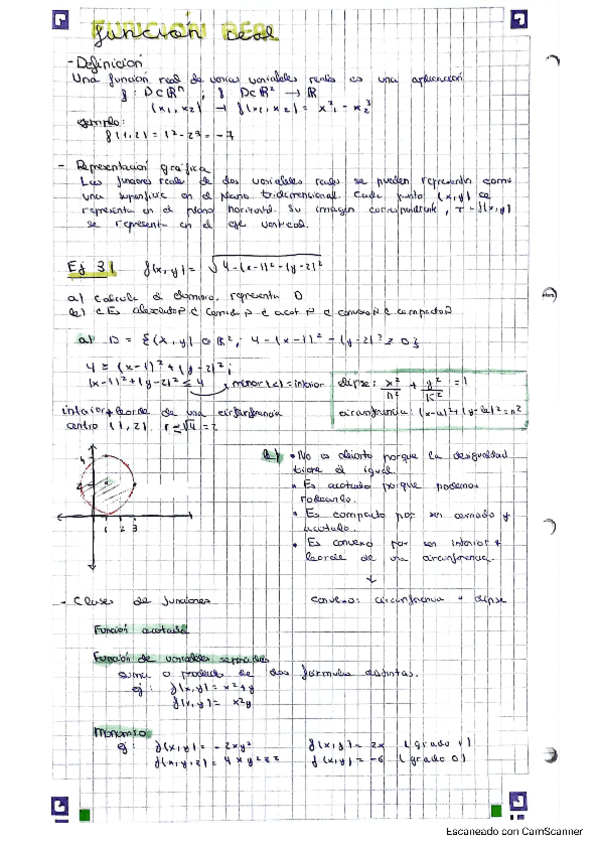 función real
- Definición
Una función real de varias variables reales es una aplicación
f: D⊂ℝⁿ ; f D⊂ℝ² → ℝ
(x₁, x₂) → f(x₁, x₂) = x₁² - x₂³
ejemplo:
f(1, ) = 1² - 2 = -7
- Representación gráfica
Las funciones reales de dos variables reales se pueden representar como
una superficie en el plano tridimensional. Cada punto (x,y) se
representa en el plano horizontal. Su imagen correspondiente, = f(x,y)
se representa en el eje vertical.
Ej 3| f(x,y) = √4-(x-1)²-(y-2)²
a) Calcula el dominio. representa D
b) ¿Es abierto? ¿ ? ¿ acot.? ¿ convexo? ¿ compacto?
a) D = {(x,y) ∈ ℝ², 4-(x-1)²-(y-2)² ≥ 0}
4 ≥ (x-1)² + (y-2)²;
(x-1)² + (y-2)² ≤ 4 , menor (<) = interior
elipse: x² + y² = 1
circunferencia: (x-a)² + (y-b)² = r²
interior + borde de una circunferencia
centro (1,2). r = √4 = 2
1 2 3
b) • No es abierto porque la desigualdad
tiene el igual.
• Es acotado porque podemos
rodearlo.
• Es compacto por ser cerrado y
acotado.
• Es convexo por ser interior +
borde de una circunferencia.
↓
convexo: circunferencia elipse
- Clases de funciones
Función acotada
Función de variables separadas
suma o producto de dos fórmulas distintas.
ej: f(x,y) = x² + y
f(x,y) = x²y
Monomio
ej: f(x,y) = -2xy² f(x,y) = 2x (grado 1)
f(x,y,z) = 4 f(x,y) = -6 (grado 0)
Escaneado con CamScanner